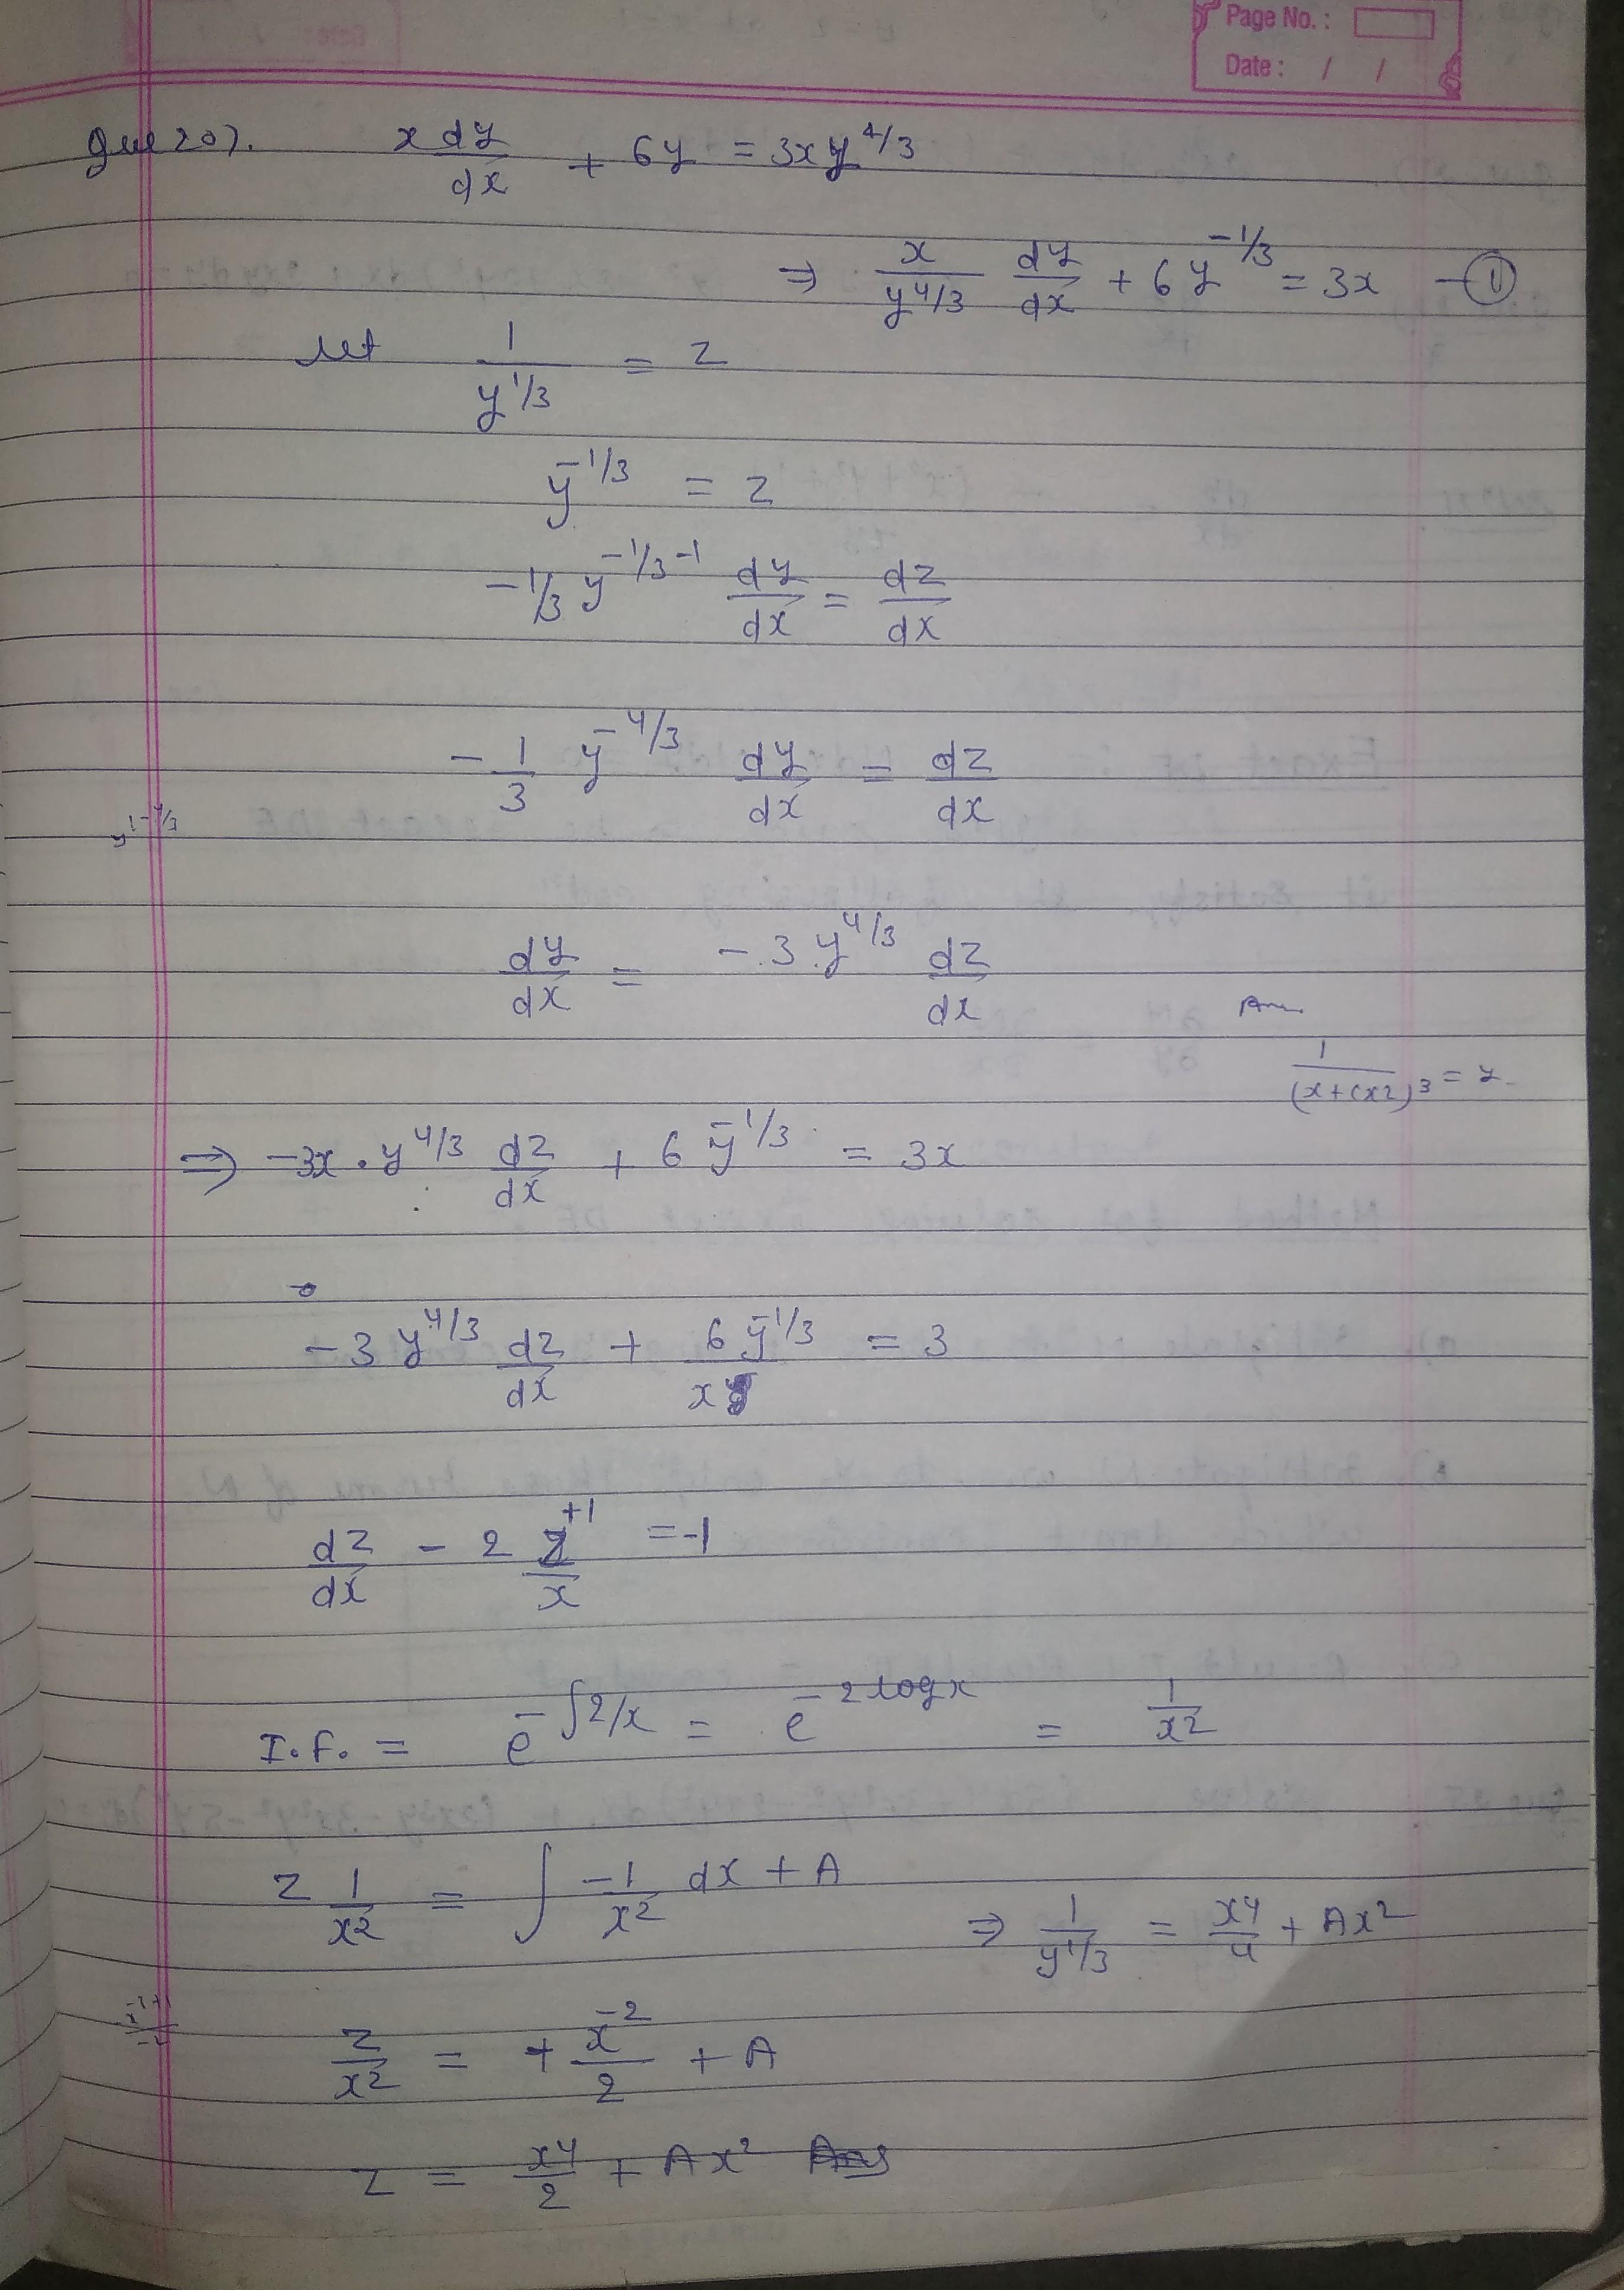 Page No. :
Date : / /
Que 20). x dy/dx + 6y = 3xy^4/3
⇒ x/y^4/3 dy/dx + 6y^-1/3 = 3x —①
let 1/y^1/3 = z
y^-1/3 = z
-1/3 y^-1/3-1 dy/dx = dz/dx
-1/3 y^-4/3 dy/dx = dz/dx
y^1-4/3
dy/dx = -3 y^4/3 dz/dx
Ans
1/(x+cx2)3 = y
⇒ -3x · y^4/3 dz/dx + 6 y^-1/3 = 3x
-3 y^4/3 dz/dx + 6 y^-1/3/x = 3
dz/dx - 2 z^+1/x = -1
I.F. = e^-∫2/x = e^-2 log x = 1/x2
z 1/x2 = ∫ -1/x2 dx + A
⇒ 1/y^1/3 = x4/4 + Ax2
z/x2 = + x^-2/2 + A
z = x4/2 + Ax2 Ans